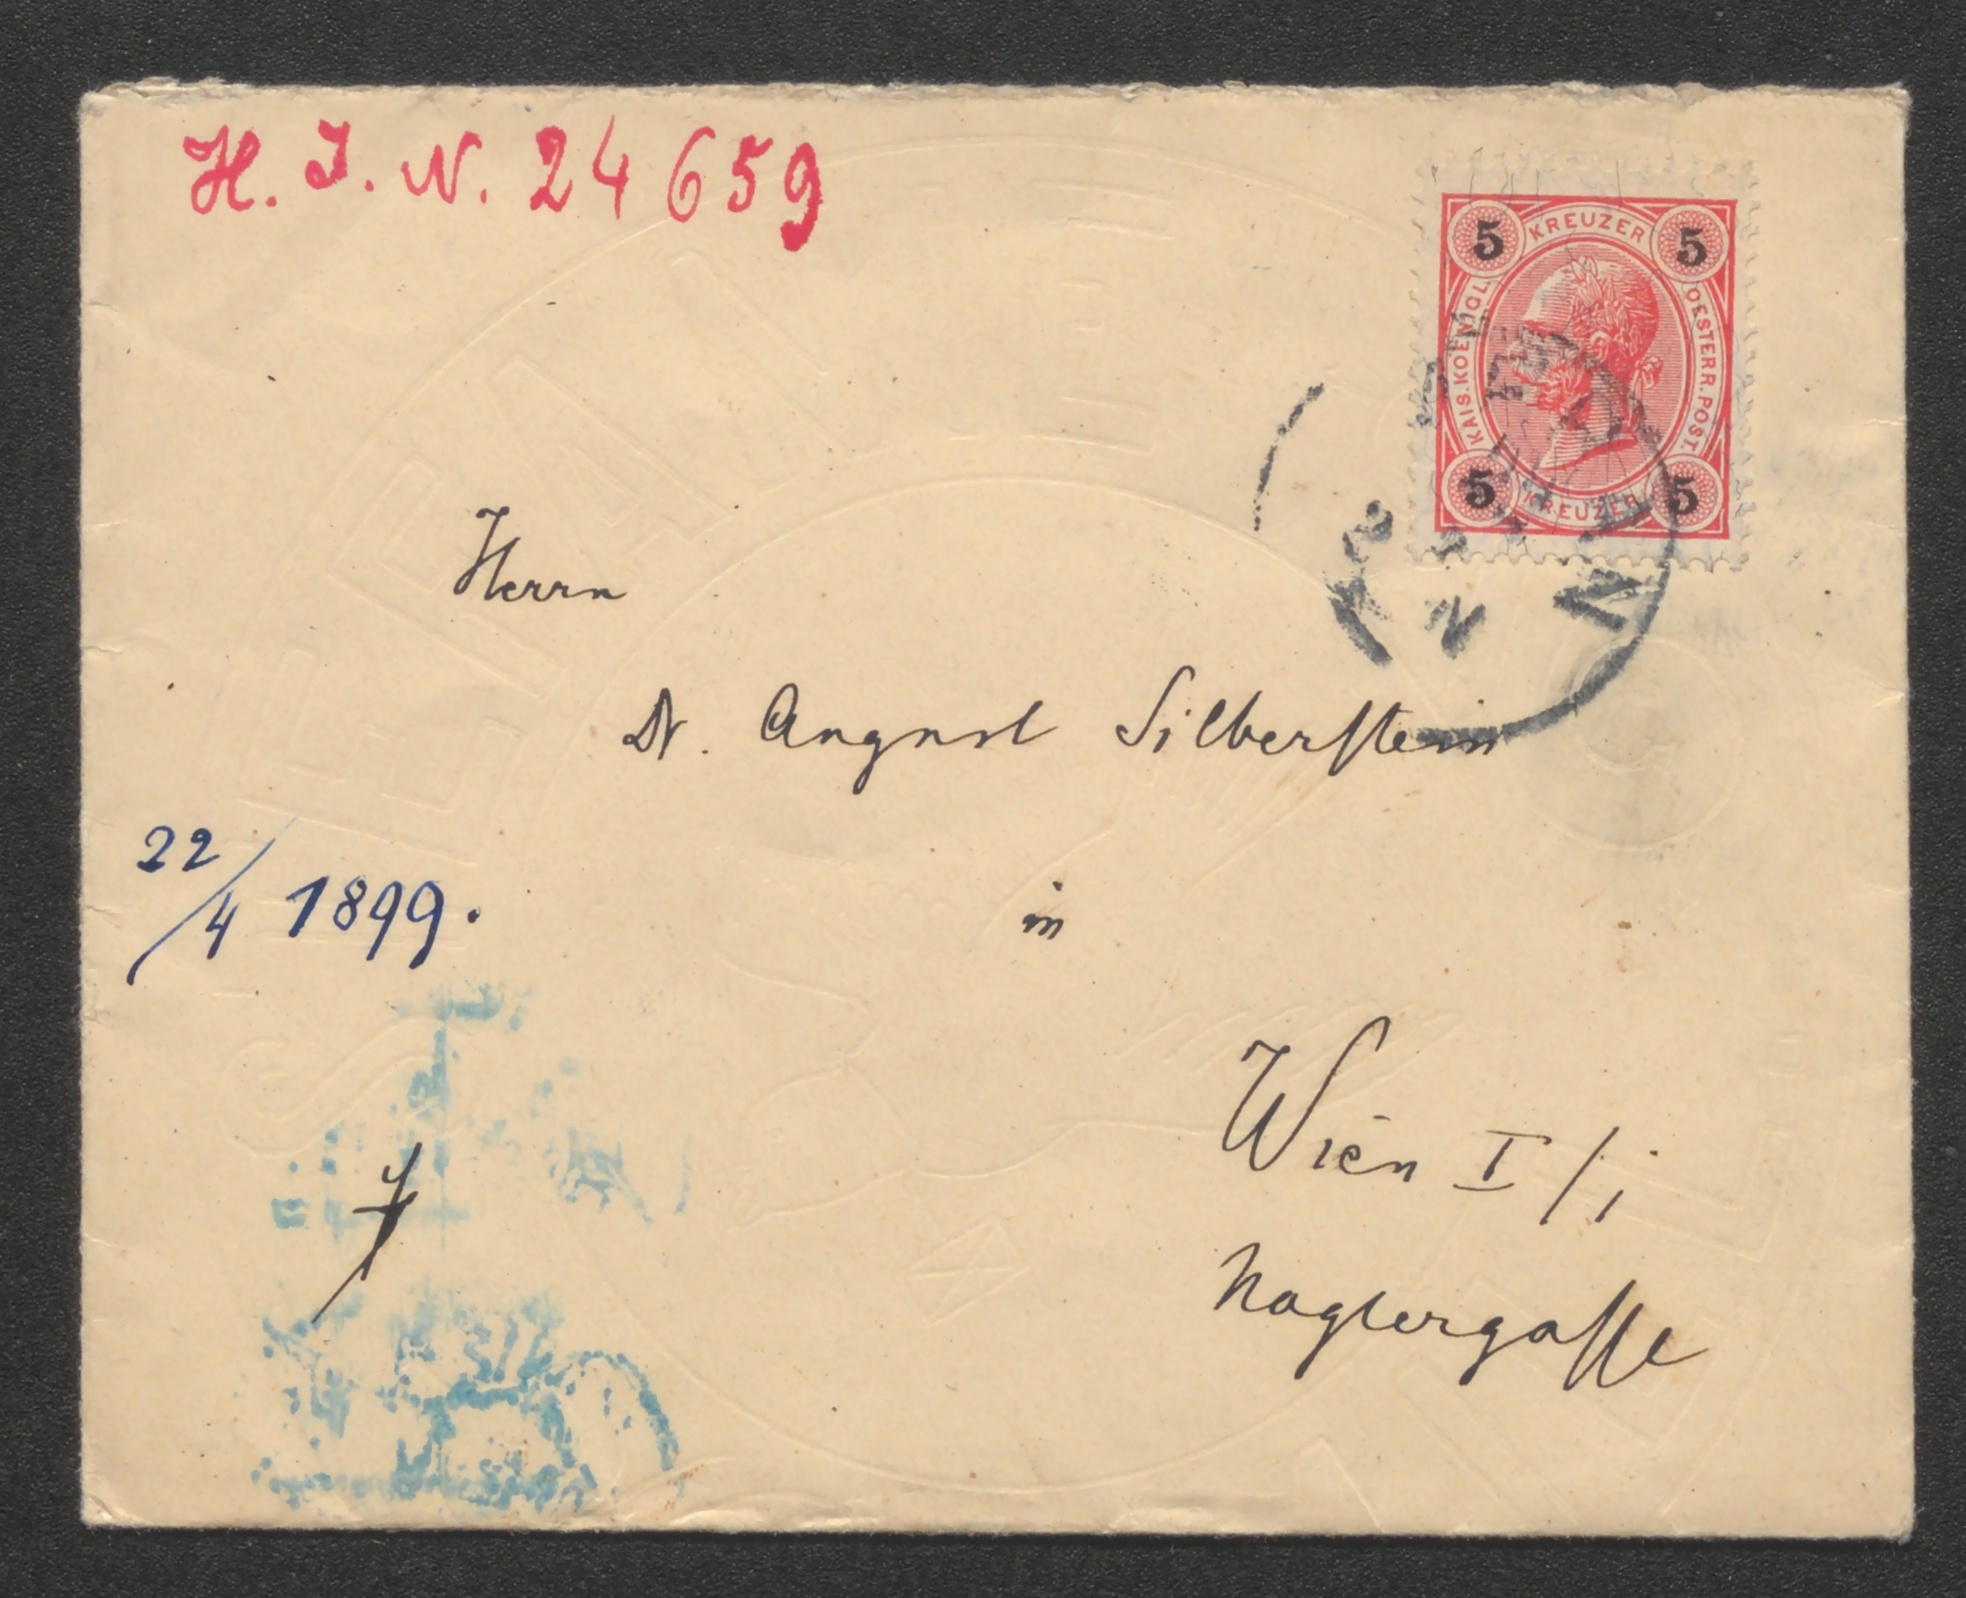 H. I. N. 24659
5 KREUZER 5
KAIS. KOENIGL. OESTERR. POST.
5 KREUZER 5
Herrn
Dr. August Silberstein
22/4 1899.
in
Wien I/i
Naglergasse